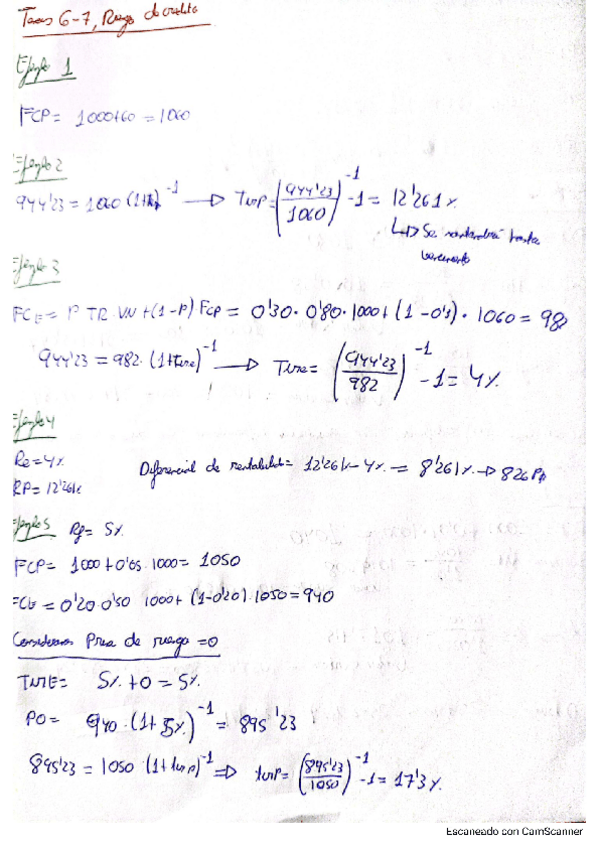 Temas 6-7, Riesgo de credito
Ejemplo 1
FCP= 1000+60 = 1060
Ejemplo 2
944'23 = 1060 (1+tirp)^-1 → TirP = (944'23/1060)^-1 -1 = 12'261%
↳ Se mantendrá hasta
vencimiento
Ejemplo 3
FCE = P·TR·VN+(1-P) FCP = 0'30·0'80·1000+(1-0'3)·1060 = 982
944'23 = 982·(1+tire)^-1 → Tire = (944'23/982)^-1 -1 = 4%
Ejemplo 4
Re=4%
RP=12'261%
Diferencial de rentabilidad= 12'261%-4% = 8'261% → 826 Pb
Ejemplo 5 Rf= 5%
FCP= 1000+0'05·1000= 1050
FCE = 0'20·0'50·1000+(1-0'20)·1050=940
Consideramos Prima de riesgo =0
TIRE= 5%+0 = 5%
P0= 940·(1+5%)^-1 = 895'23
895'23 = 1050·(1+tirp)^-1 ⇒ tirP= (895'23/1050)^-1 -1 = 17'3%
Escaneado con CamScanner